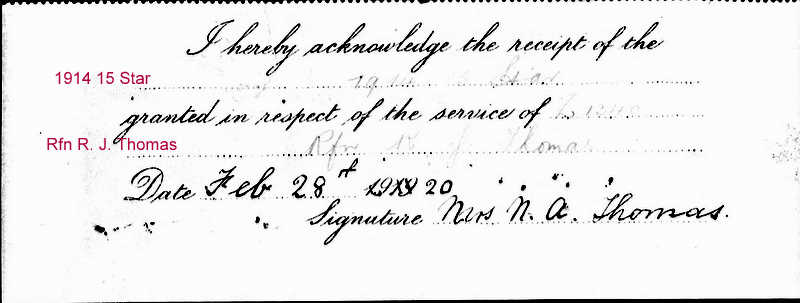 I hereby acknowledge the receipt of the
1914 15 Star
1914 Star
granted in respect of the service of
Rfn R. J. Thomas
Rfn R J Thomas
Date Feb 28 1920
Signature Mrs N. A. Thomas.